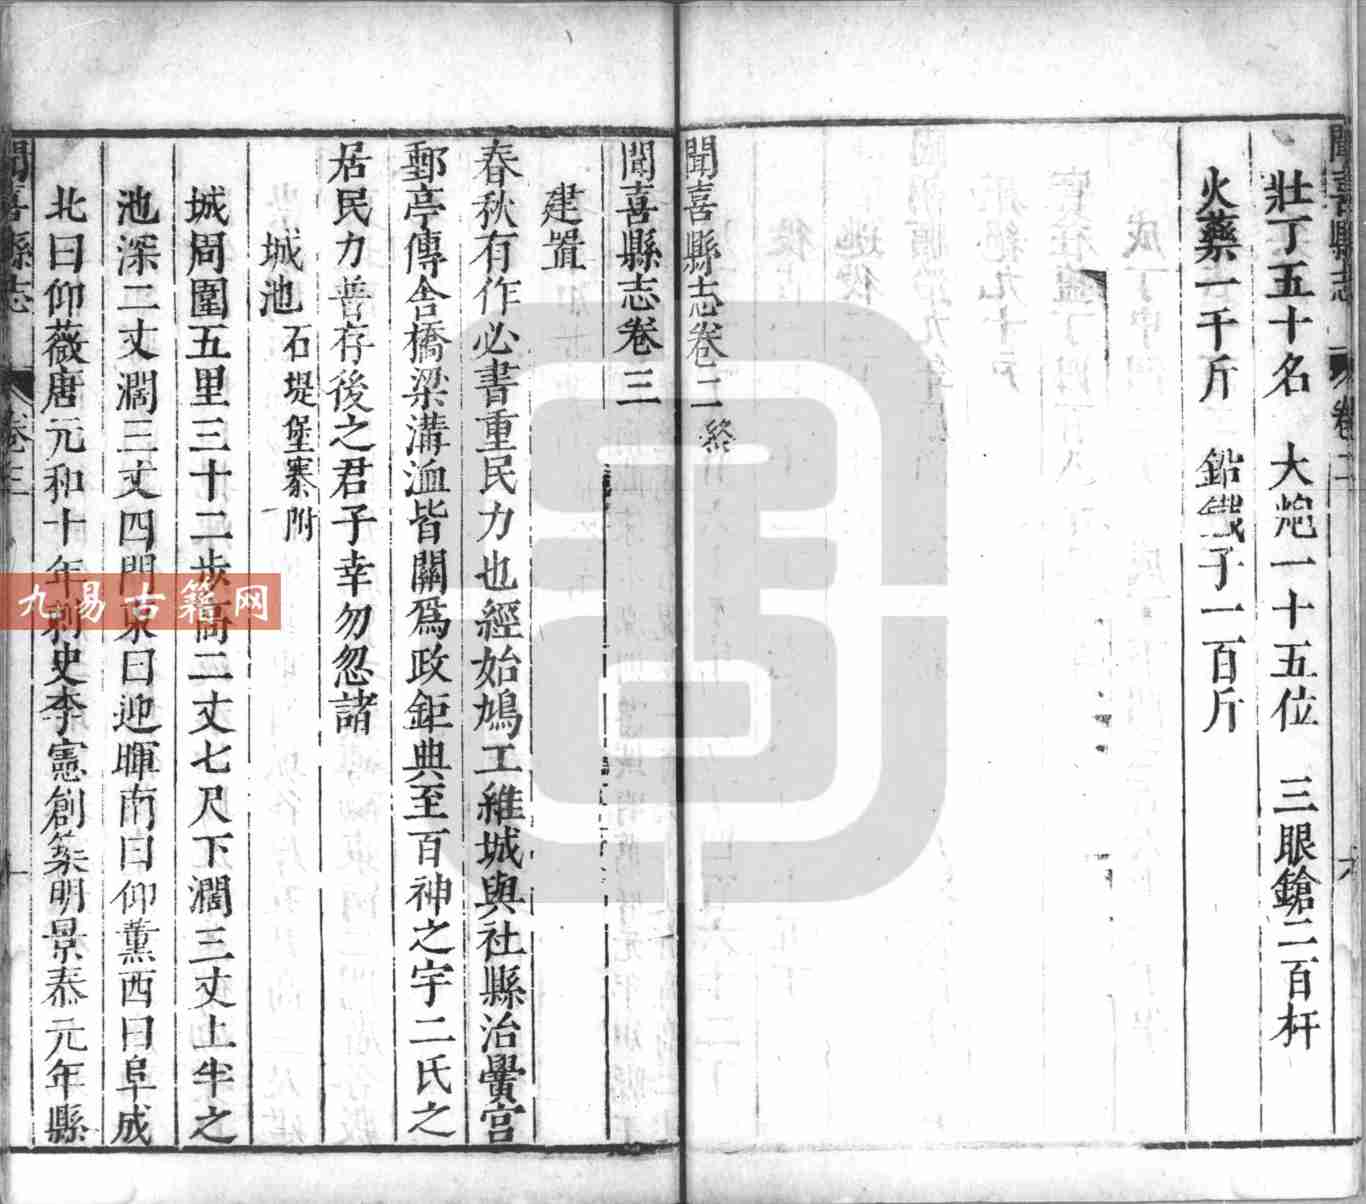 聞喜縣志 卷二
壯丁五十名 大炮一十五位 三眼鎗二百杆
火藥一千斤 鉛鐵子一百斤
聞喜縣志卷二終
聞喜縣志卷三
建置
春秋有作必書重民力也經始鳩工維城與社縣治黌宮
郵亭傳舍橋梁溝洫皆關爲政鉅典至百神之宇二氏之
居民力普存後之君子幸勿忽諸
城池 石堤堡寨附
城周圍五里三十二步高二丈七尺下濶三丈上半之
池深二丈濶三丈四門東曰迎暉南曰仰薰西曰阜成
北曰仰薇唐元和十年刺史李憲創築明景泰元年縣
聞喜縣志 卷三 一
九易古籍网